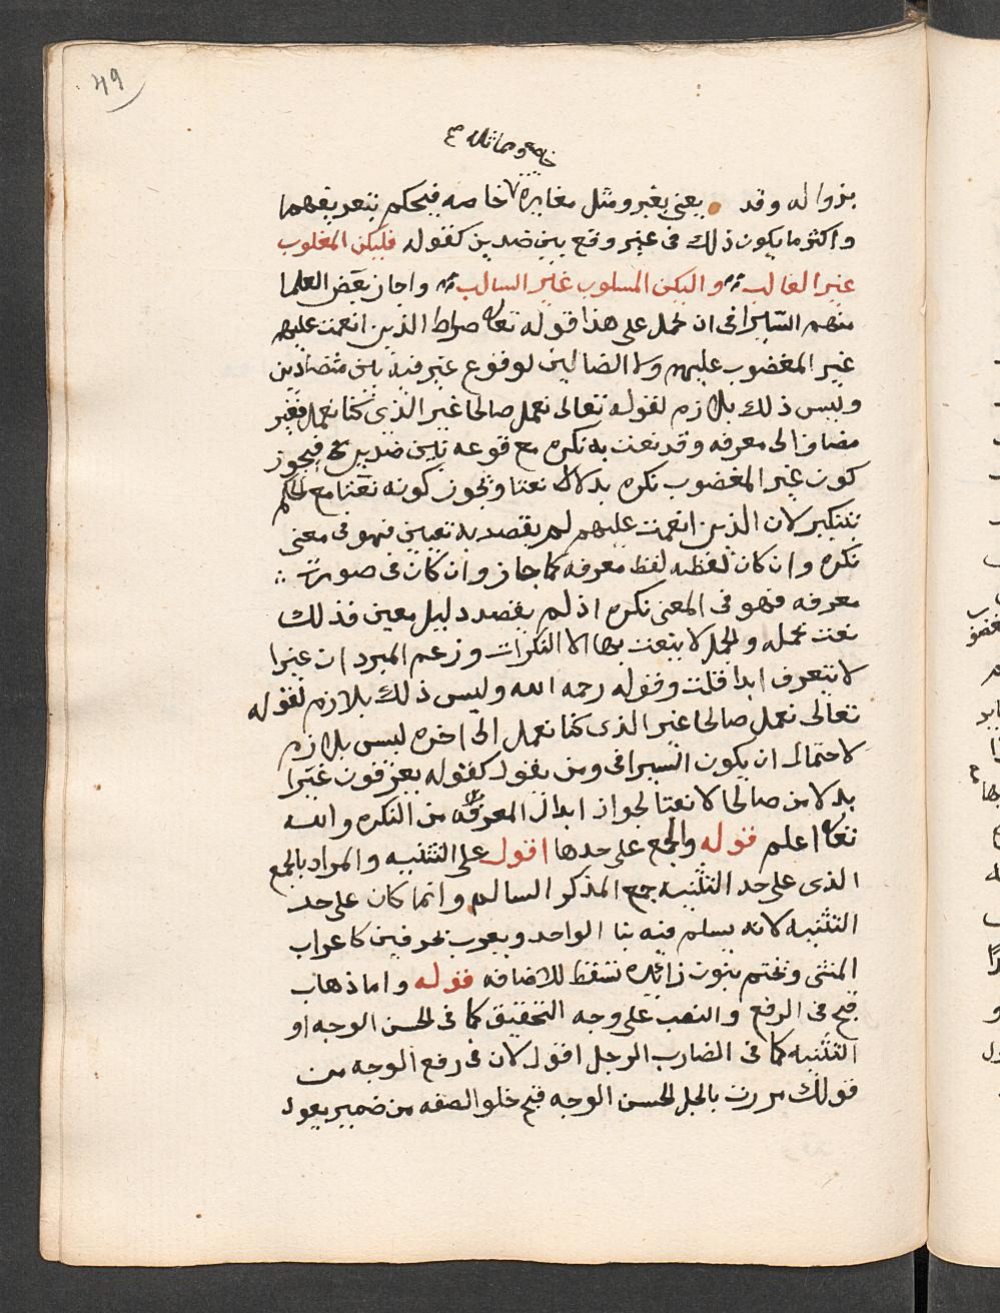 49
خاصه ومماثله ع
بزواله وقد يعنى بغير ومثل مغايره خاصه فيحكم بتعريفهما
واكثر ما يكون ذلك فى غير وقع بين ضدين كقوله فليكن المغلوب
غير الغالب واليكن المسلوب غير السالب واجاز بعض العلما
منهم السيرافى ان يحمل على هذا قوله تعالى صراط الذين انعمت عليهم
غير المغضوب عليهم ولا الضالين لوقوع غير فيه بين متضادين
وليس ذلك بلازم لقوله تعالى نعمل صالحا غير الذى كنا نعمل فغير
مضاف الى معرفه وقد نعت به نكره مع قوعه بين ضدين فيجوز
كون غير المغضوب نكره بدلا لا نعتا ويجوز كونه نعتا مع الحكم
بتنكير لان الذين انعمت عليهم لم يقصد به تعيين فهو فى معنى
نكره وان كان لفظه لفظ معرفه كما جاز وان كان فى صورت
معرفه فهو فى المعنى نكره اذ لم يقصد دليل معين فذلك
نعت بجمله والجمل لا ينعت بها الا النكرات وزعم المبرد ان غيرا
لا يتعرف ابدا قلت وقوله رحمه الله وليس ذلك بلازم لقوله
تعالى نعمل صالحا غير الذى كنا نعمل الى اخره ليس بلازم
لاحتمال ان يكون السيرافى ومن يقول كقوله يعرفون غيرا
بدلا من صالحا لا نعتا لجواز ابدال المعرفه من النكره والله
تعالى اعلم قوله والجمع على حدها اقول على التثنيه والمراد بالجمع
الذى على حد التثنيه جمع المذكر السالم وانما كان على حد
التثنيه لانه يسلم فيه بنا الواحد ويعرب بحرفين كاعراب
المثنى ويختم بنون زائده تسقط للاضافه قوله واما ذهاب
قبح فى الرفع والنصب على وجه التحقيق كما فى الحسن الوجه او
التثنيه كما فى الضارب الرجل اقول لان فى رفع الوجه من
قولك مررت بالجل الحسن الوجه قبح خلو الصفه من ضمير يعود